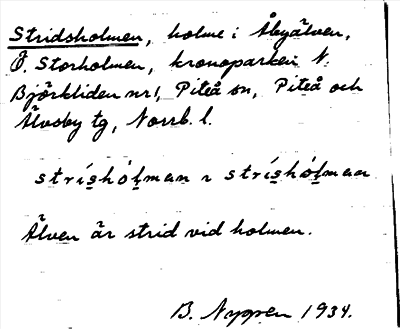 Stridsholmen, holme i Åbyälven,
Ö. Storholmen, kronoparken N.
Björkliden nr 1, Piteå sn, Piteå och
Älvsby tg, Norrb. l.
stríshólman ɿ stríshólmaa
Älven är strid vid holmen.
B. Nygren 1934.